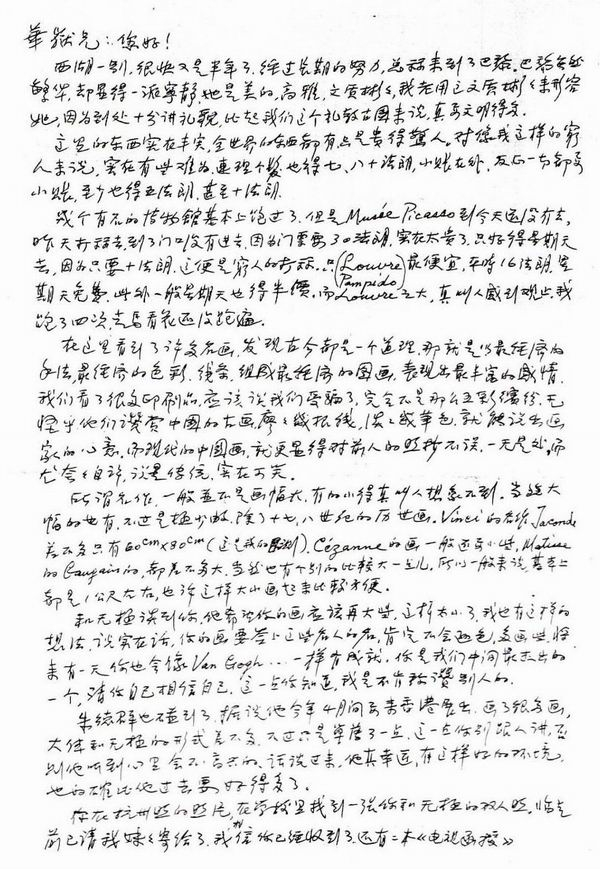 華嶽兄：您好！
西湖一别，很快又是半年了。经过长期的努力，总算来到了巴黎。巴黎无比
繁华，却显得一派宁静，她是美的，高雅、文质彬彬，我老用上文质彬彬来形容
她，因为到处十分讲礼貌，比起我们这个礼教古国来说，真要文明得多。
这里的东西实在丰实，全世界的东西都有，只是贵得驚人。对您我这样的窮
人来说，实在有些难为，連理个髮也得七、八十法朗，小账在外，反正一切都要
小账，至少也得五法朗，甚至十法朗。
幾个有名的博物館基本上跑过了，但是Musée Picasso到今天还没有去，
昨天打算去到了门口没有进去，因为门票要30法朗，实在太贵了，只好得等期天
去，因为只要十法朗，这便是窮人的打算。只(Louvre Pampido)最便宜，平時16法朗，星
期天免费，此外一般星期天也得半價。而Louvre之大，真叫人感到观止，我
跑了四次，走馬看花还没跑遍。
在这里看到了许多名画，发现古今都是一个道理，那就是以最经济的
手法，最经济的色彩、线条，组成最经济的图画，表现出最丰富的感情。
我们看了很多印刷品，应该说我们受骗了，完全不是那么五彩缤纷，无
怪乎他们讚赏中国的古画，廖廖幾根线，淡淡或单色，就能说出画
家的心意。而现代的中国画，就更显得对前人的照抄不误，一无是处，而
尤念念自诩，说是传统，实在可笑。
所谓名作，一般並不是画幅大，有的小得真叫人想象不到。当然大
幅的也有，不过是极少数，除了十七、八世纪的历世画。Vinci的杰作，Jaconde
差不多只有60cm×80cm（这是我的目测）。Cézanne的画一般还要小些，Matisse
的Gaugain的，都差不多大，当然也有个别的比较大一点儿。所以一般来说，基本上
都是1公尺左右，也许这样大小画起来比较方便。
和无極谈到你，他希望你的画应该再大些，这样太小了，我也有这样的
想法。说实在话，你的画要签上这些名人的名，肯定不会遜色，多画些，将
来有一天你也会像Van Gogh……一样有成就。你是我们中间最杰出的
一个，请你自己相信自己，这一点你知道，我是不肯称讚别人的。
朱德群也不碰到了，据说他今年4月间要来香港展出，画了很多画，
大体和无極的形式差不多，不过只是单薄了一点，这一点你别跟人讲，否
则他听到心里会不高兴的。话说过来，他真幸运，有这样好的环境，
他的确比他过去要好得多了。
你在杭州照的照片，在学校里找到一张你和无極的双人照，临走
前已请我妹妹寄给了，我相信你已经收到了，还有二本《电视画报》